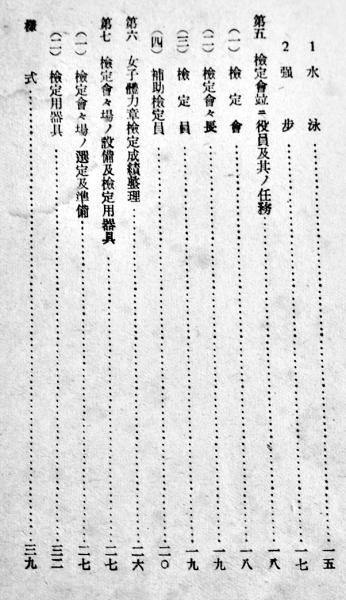 1 水泳……一五
2 强步……一七
第五 檢定會竝ニ役員及其ノ任務……一八
(一) 檢定會……一八
(二) 檢定會々長……一九
(三) 檢定員……一九
(四) 補助檢定員……二〇
第六 女子體力章檢定成績整理……二六
第七 檢定會々場ノ設備及檢定用器具……二七
(一) 檢定會々場ノ選定及準備……二七
(二) 檢定用器具……三二
樣式……三九